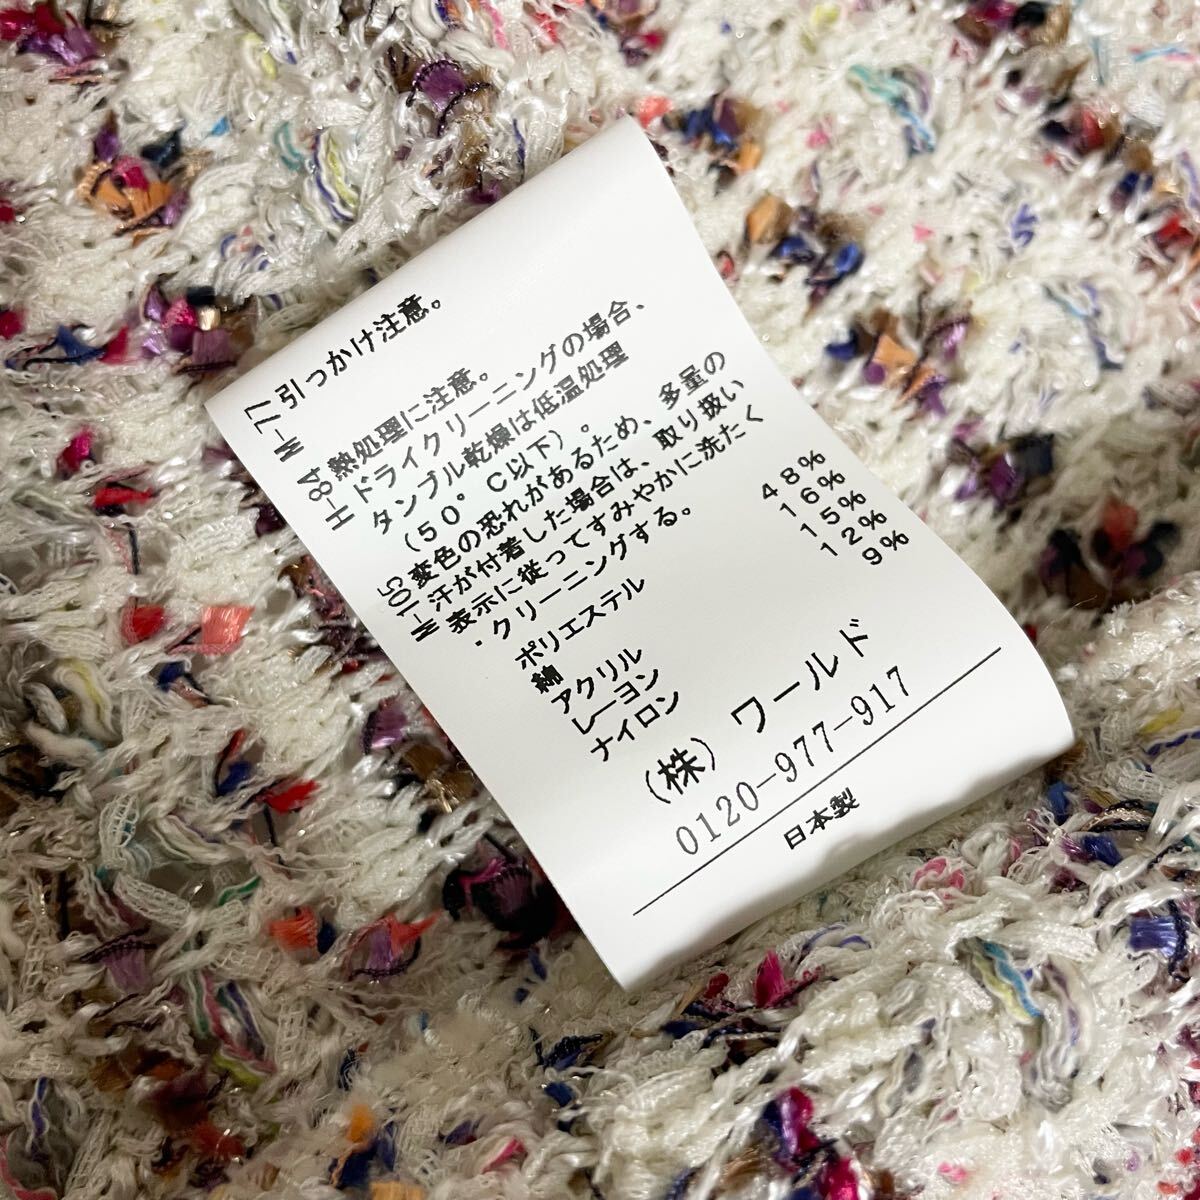 H-77
引っかけ注意。
H-84
熱処理に注意。
ドライクリーニングの場合、
タンブル乾燥は低温処理
（50°C以下）。
H-105
変色の恐れがあるため、多量の
汗が付着した場合は、取り扱い
表示に従ってすみやかに洗たく
・クリーニングする。
ポリエステル 48%
綿 16%
アクリル 15%
レーヨン 12%
ナイロン 9%
（株） ワールド
0120-977-917
日本製